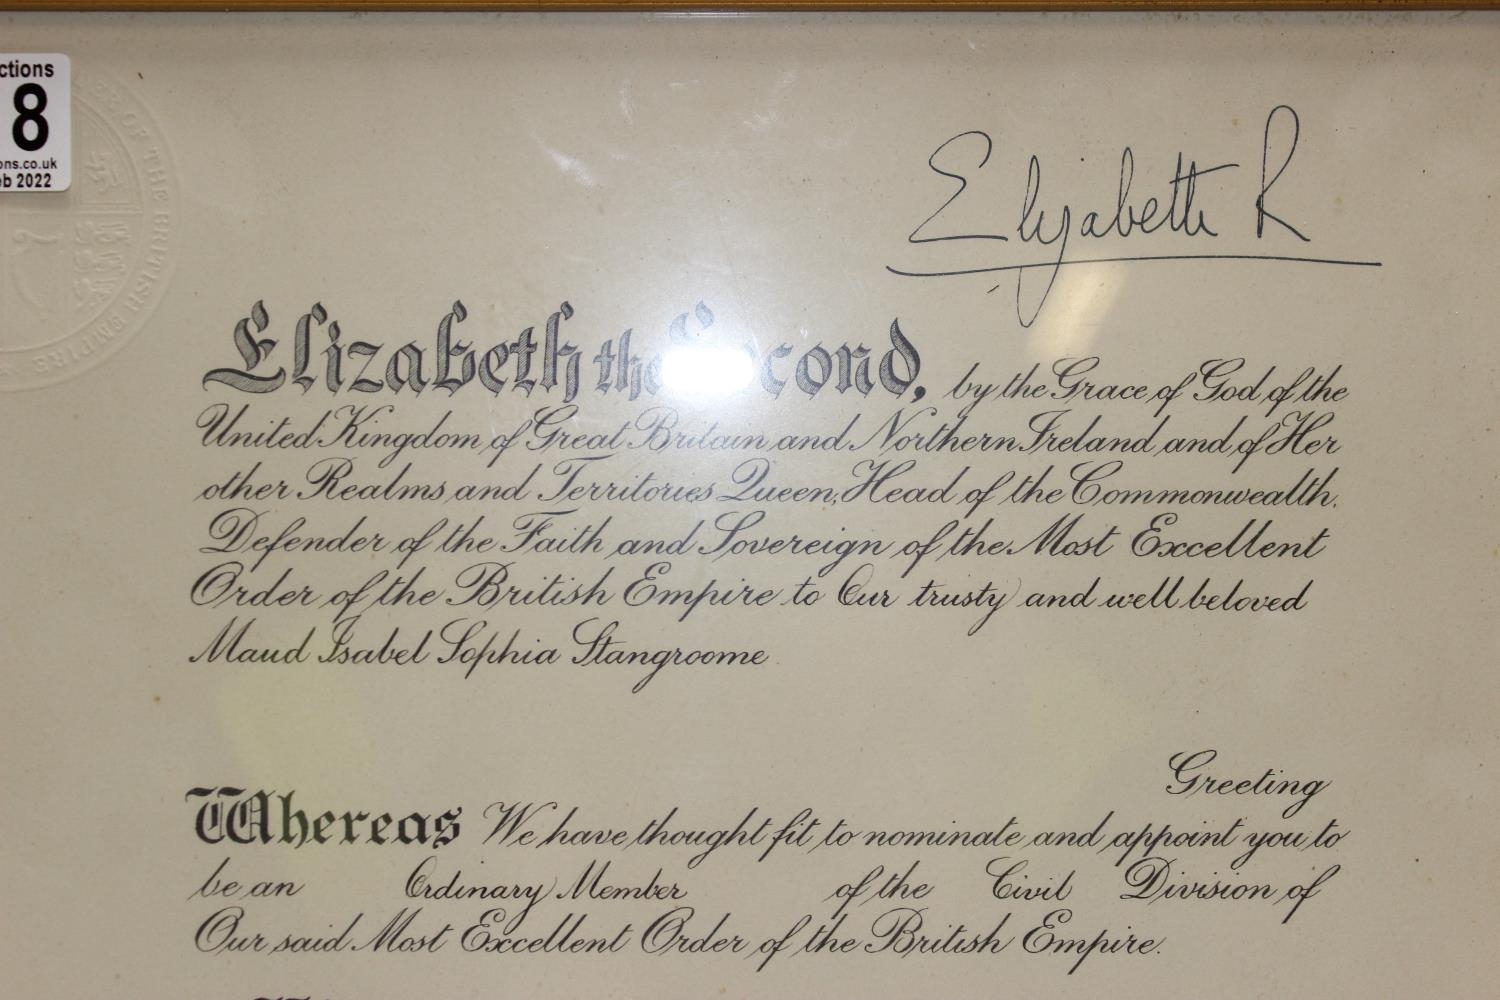 ctions
8
ons.co.uk
eb 2022
ER OF THE BRITISH EMPIRE
Elizabeth R
Elizabeth the Second, by the Grace of God of the
United Kingdom of Great Britain and Northern Ireland and of Her
other Realms and Territories Queen, Head of the Commonwealth,
Defender of the Faith and Sovereign of the Most Excellent
Order of the British Empire to Our trusty and well beloved
Maud Isabel Sophia Stangroome
Greeting
Whereas We have thought fit to nominate and appoint you to
be an Ordinary Member of the Civil Division of
Our said Most Excellent Order of the British Empire.